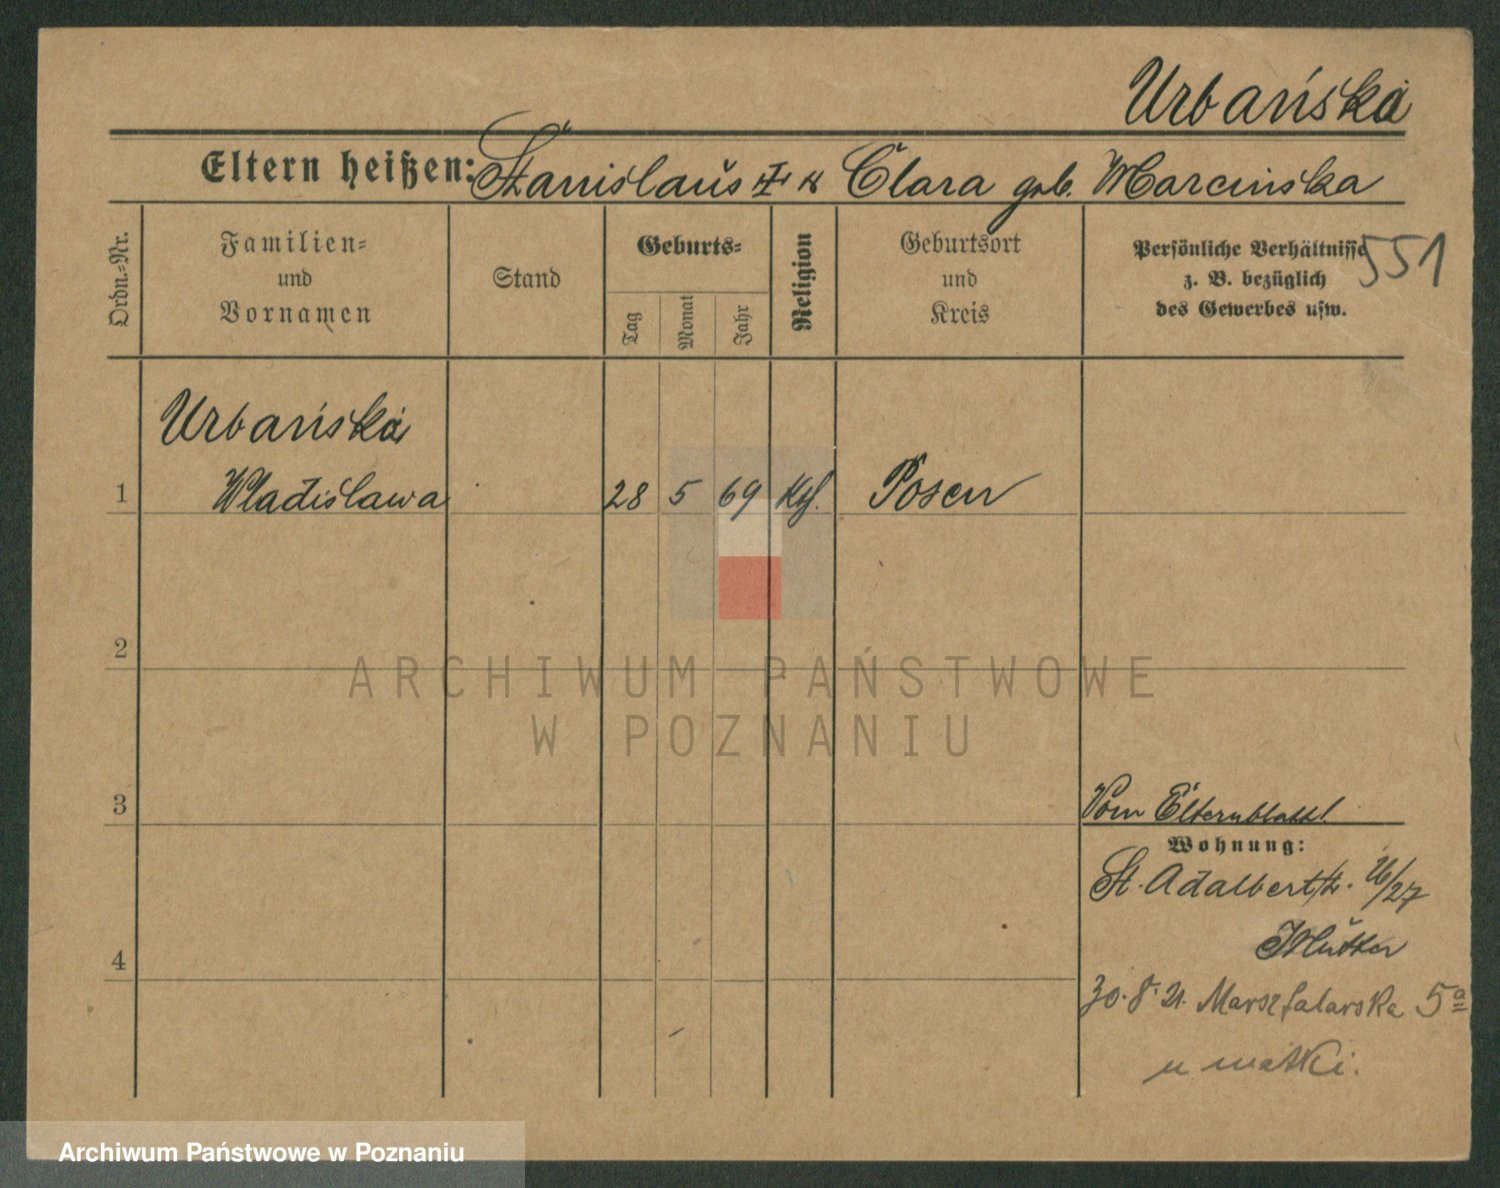 Urbańska
Eltern heißen: Stanislaus u Clara geb. Marcinska
Ordn.-Nr.
Familien-
und
Vornamen
Stand
Geburts-
Tag
Monat
Jahr
Religion
Geburtsort
und
Kreis
Persönliche Verhältnisse
z. B. bezüglich
des Gewerbes usw.
551
Urbańska
1 Wladislawa 28 5 69 Kth. Posen
2
3
4
Vom Elternblatt!
Wohnung:
St. Adalbertstr. 26/27
Mutter
30. 8. 21. Marszalarska 5a
u matki.
ARCHIWUM PAŃSTWOWE
W POZNANIU
Archiwum Państwowe w Poznaniu